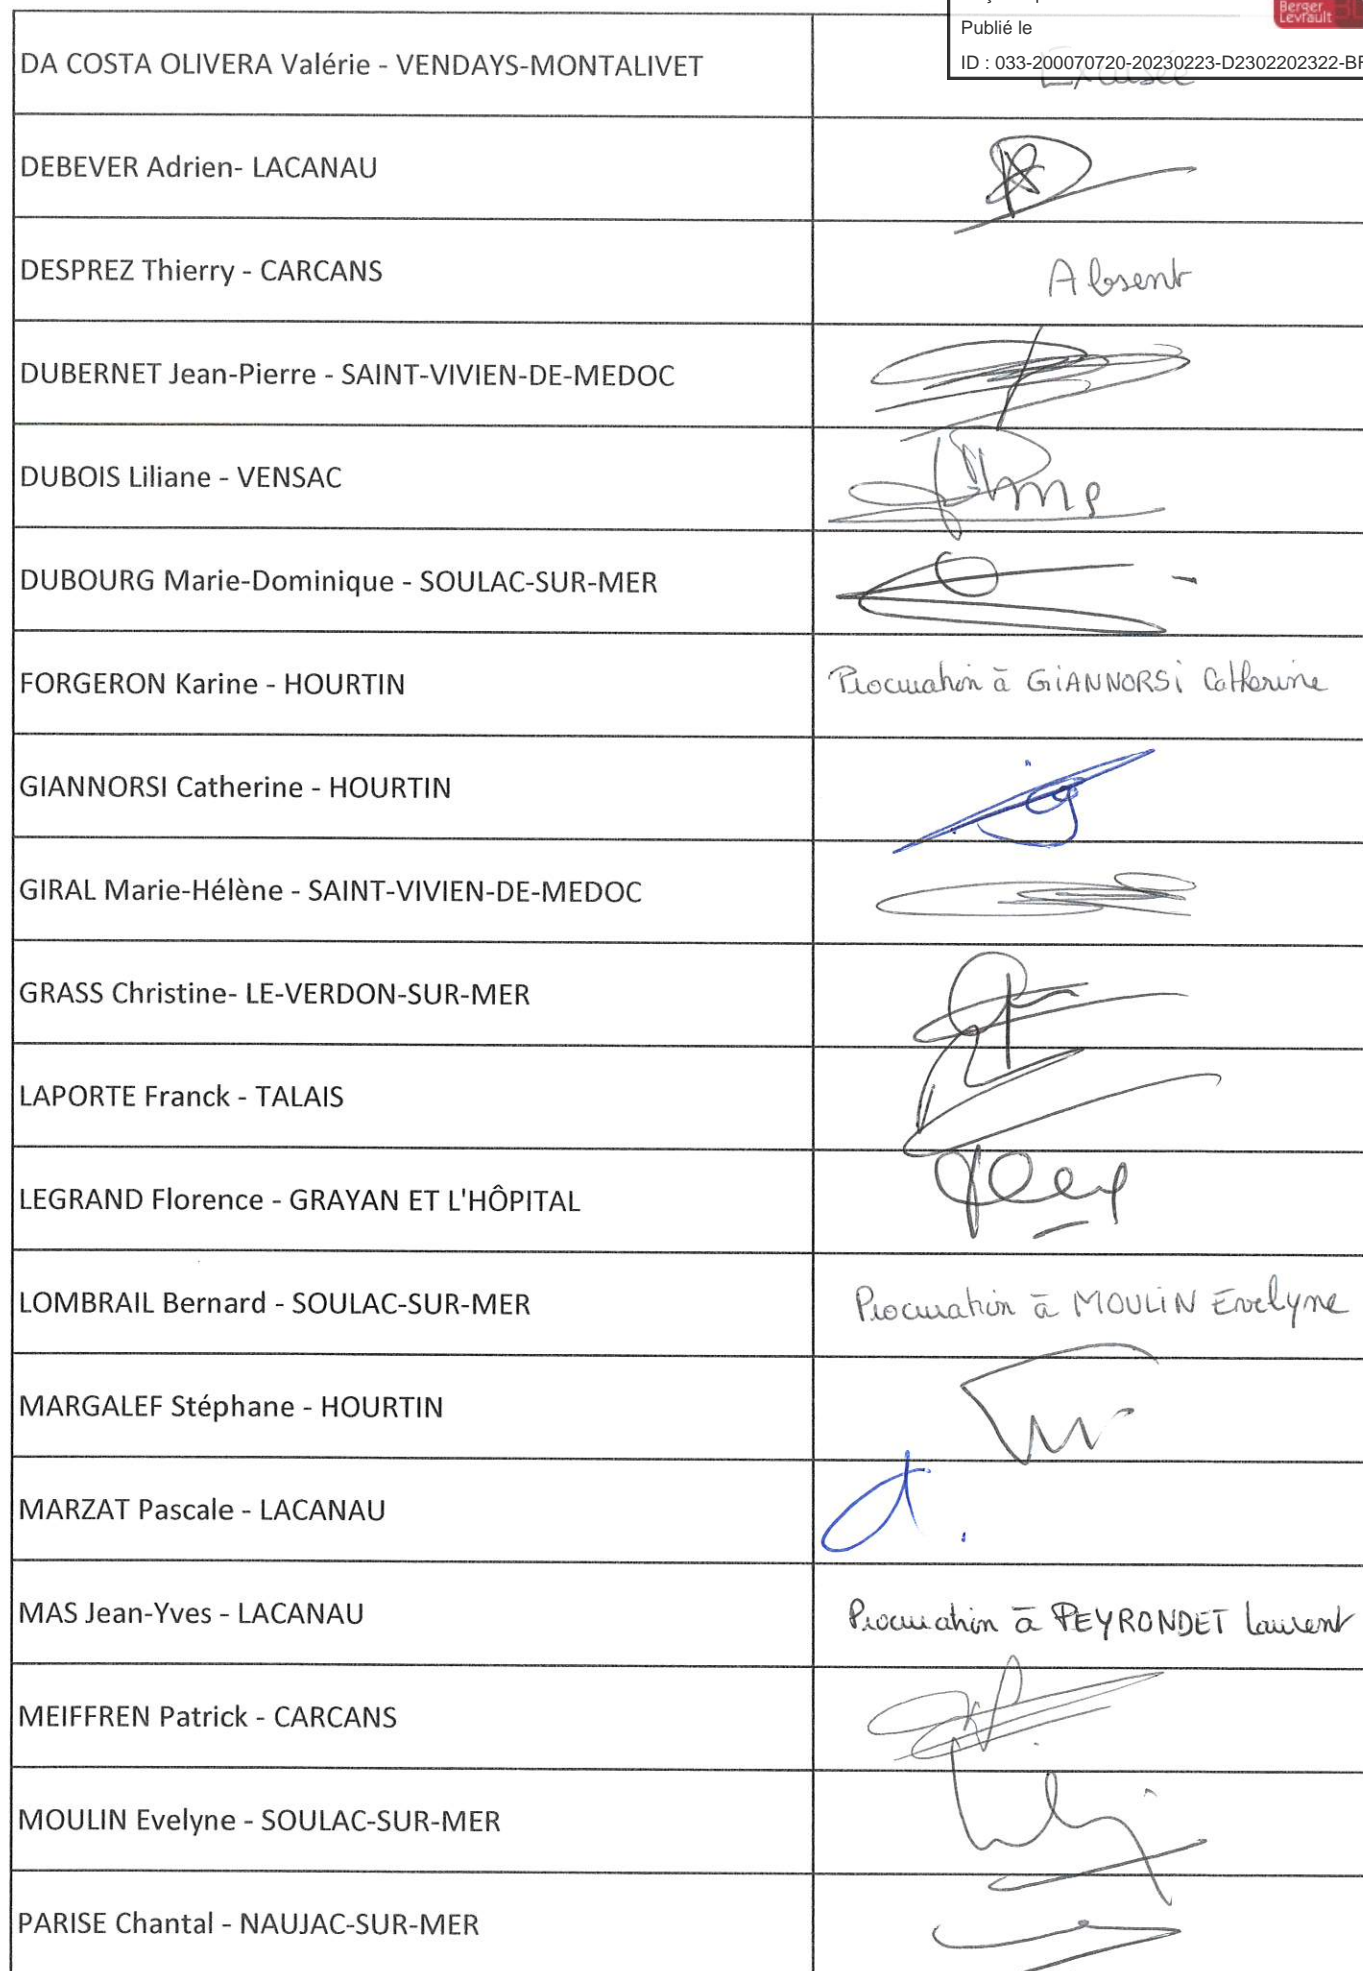 Berger
Levrault
Publié le
ID : 033-200070720-20230223-D2302202322-BF
DA COSTA OLIVERA Valérie - VENDAYS-MONTALIVET
Excusée
DEBEVER Adrien- LACANAU
DESPREZ Thierry - CARCANS
Absent
DUBERNET Jean-Pierre - SAINT-VIVIEN-DE-MEDOC
DUBOIS Liliane - VENSAC
DUBOURG Marie-Dominique - SOULAC-SUR-MER
FORGERON Karine - HOURTIN
Procuration à GIANNORSI Catherine
GIANNORSI Catherine - HOURTIN
GIRAL Marie-Hélène - SAINT-VIVIEN-DE-MEDOC
GRASS Christine- LE-VERDON-SUR-MER
LAPORTE Franck - TALAIS
LEGRAND Florence - GRAYAN ET L'HÔPITAL
LOMBRAIL Bernard - SOULAC-SUR-MER
Procuration à MOULIN Evelyne
MARGALEF Stéphane - HOURTIN
MARZAT Pascale - LACANAU
MAS Jean-Yves - LACANAU
Procuration à PEYRONDET Laurent
MEIFFREN Patrick - CARCANS
MOULIN Evelyne - SOULAC-SUR-MER
PARISE Chantal - NAUJAC-SUR-MER